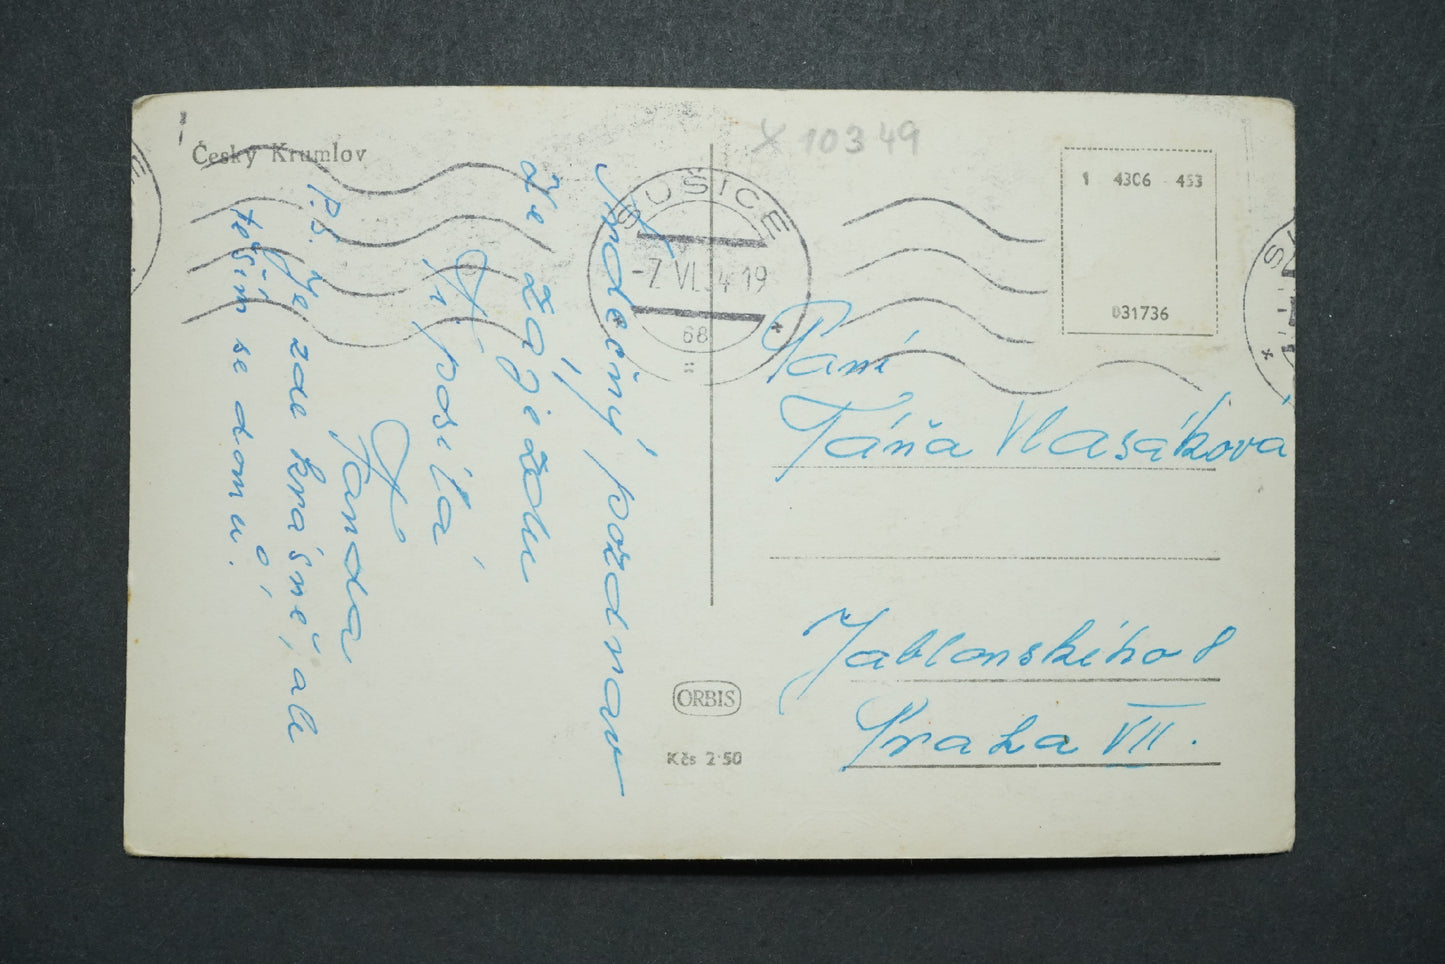 Český Krumlov
Srdečný pozdrav
ze zájezdu
Ti posílá
Jarda
P.S. Je zde krásně, ale
těším se domů.
SUŠICE
-7 VI. 54 19
68
X 10349
1 43C6 453
D31736
Paní
Táňa Vlasáková
Jablonského 8
Praha VII.
ORBIS
Kčs 2·50